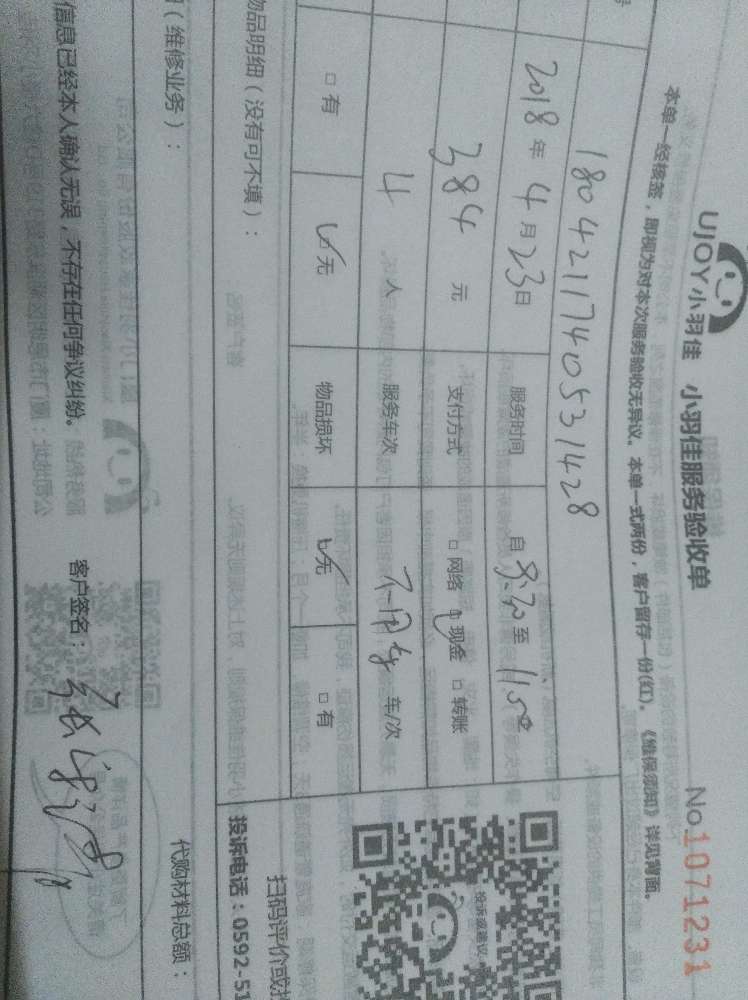 UJOY小羽佳 小羽佳服务验收单
No.1071231
本单一经核签，即视为对本次服务验收无异议。本单一式两份，客户留存一份(红)。《维保须知》详见背面。
号
1804211740531428
2018年4月23日 服务时间 自8:30至11:50
384元 支付方式 □网络 ☑现金 □转账
4人 服务车次 不用车 车/次
□有 ☑无 物品损坏 ☑无 □有
物品明细（没有可不填）：
扫码评价或
投诉电话：0592-51
（维修业务）：
代购材料总额：
信息已经本人确认无误，不存在任何争议纠纷。
客户签名：